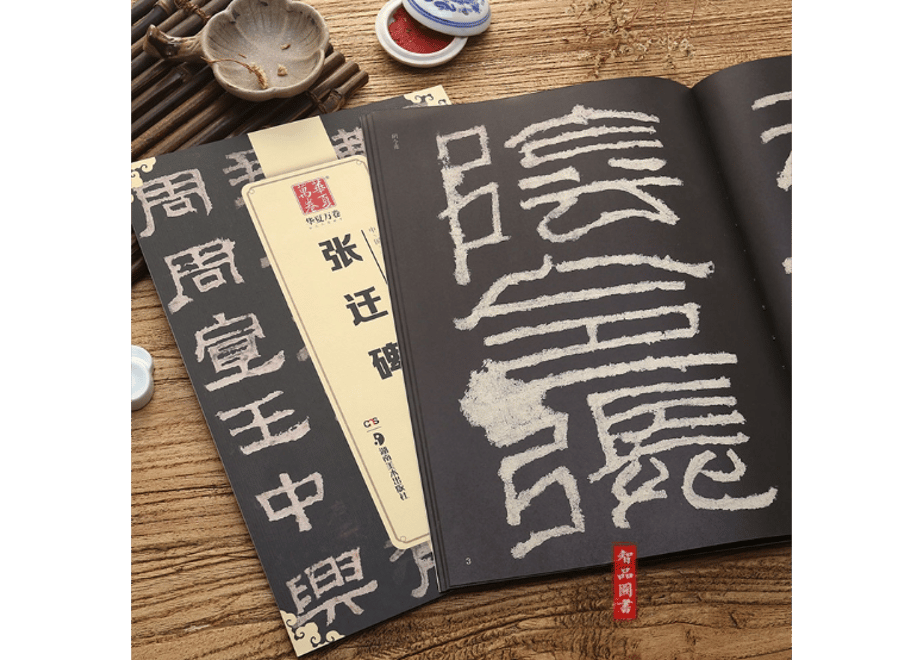 周
周
宣
王
中
興
華夏
萬卷
华夏万卷
张迁碑
湖南美术出版社
陰
令
張
3
智品圖書